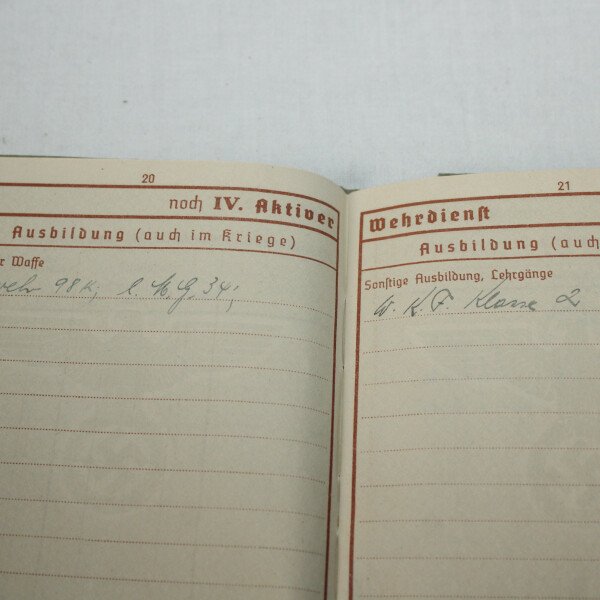 20
noch IV. Aktiver
Ausbildung (auch im Kriege)
r Waffe
wehr 98k; l. M.G. 34;
21
Wehrdienst
Ausbildung (auch
Sonstige Ausbildung, Lehrgänge
W. K. F Klasse 2